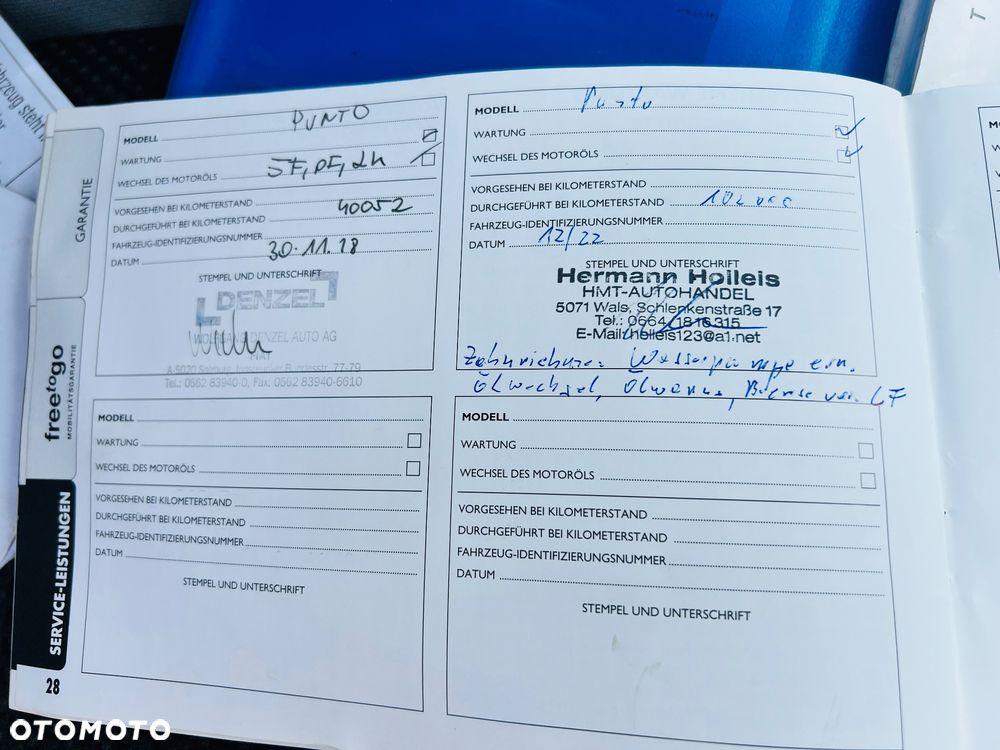 GARANTIE
freetogo
MOBILITÄTSGARANTIE
SERVICE-LEISTUNGEN
28
MODELL PUNTO
WARTUNG
WECHSEL DES MOTORÖLS
VORGESEHEN BEI KILOMETERSTAND
DURCHGEFÜHRT BEI KILOMETERSTAND 40052
FAHRZEUG-IDENTIFIZIERUNGSNUMMER
DATUM 30.11.18
STEMPEL UND UNTERSCHRIFT
DENZEL
WOLFGANG DENZEL AUTO AG
FIAT
A-5020 Salzburg, Innsbrucker Bundesstr. 77-79
Tel.: 0662 83940-0, Fax: 0662 83940-6610
MODELL Punto
WARTUNG
WECHSEL DES MOTORÖLS
VORGESEHEN BEI KILOMETERSTAND
DURCHGEFÜHRT BEI KILOMETERSTAND
FAHRZEUG-IDENTIFIZIERUNGSNUMMER
DATUM 12/22
STEMPEL UND UNTERSCHRIFT
Hermann Holleis
HMT-AUTOHANDEL
5071 Wals, Schlenkenstraße 17
Tel.: 0664 1816315
E-Mail:holleis123@a1.net
Zahnriemen Wasserpumpe ern.
Ölwechsel,
MODELL
WARTUNG
WECHSEL DES MOTORÖLS
VORGESEHEN BEI KILOMETERSTAND
DURCHGEFÜHRT BEI KILOMETERSTAND
FAHRZEUG-IDENTIFIZIERUNGSNUMMER
DATUM
STEMPEL UND UNTERSCHRIFT
MODELL
WARTUNG
WECHSEL DES MOTORÖLS
VORGESEHEN BEI KILOMETERSTAND
DURCHGEFÜHRT BEI KILOMETERSTAND
FAHRZEUG-IDENTIFIZIERUNGSNUMMER
DATUM
STEMPEL UND UNTERSCHRIFT
OTOMOTO